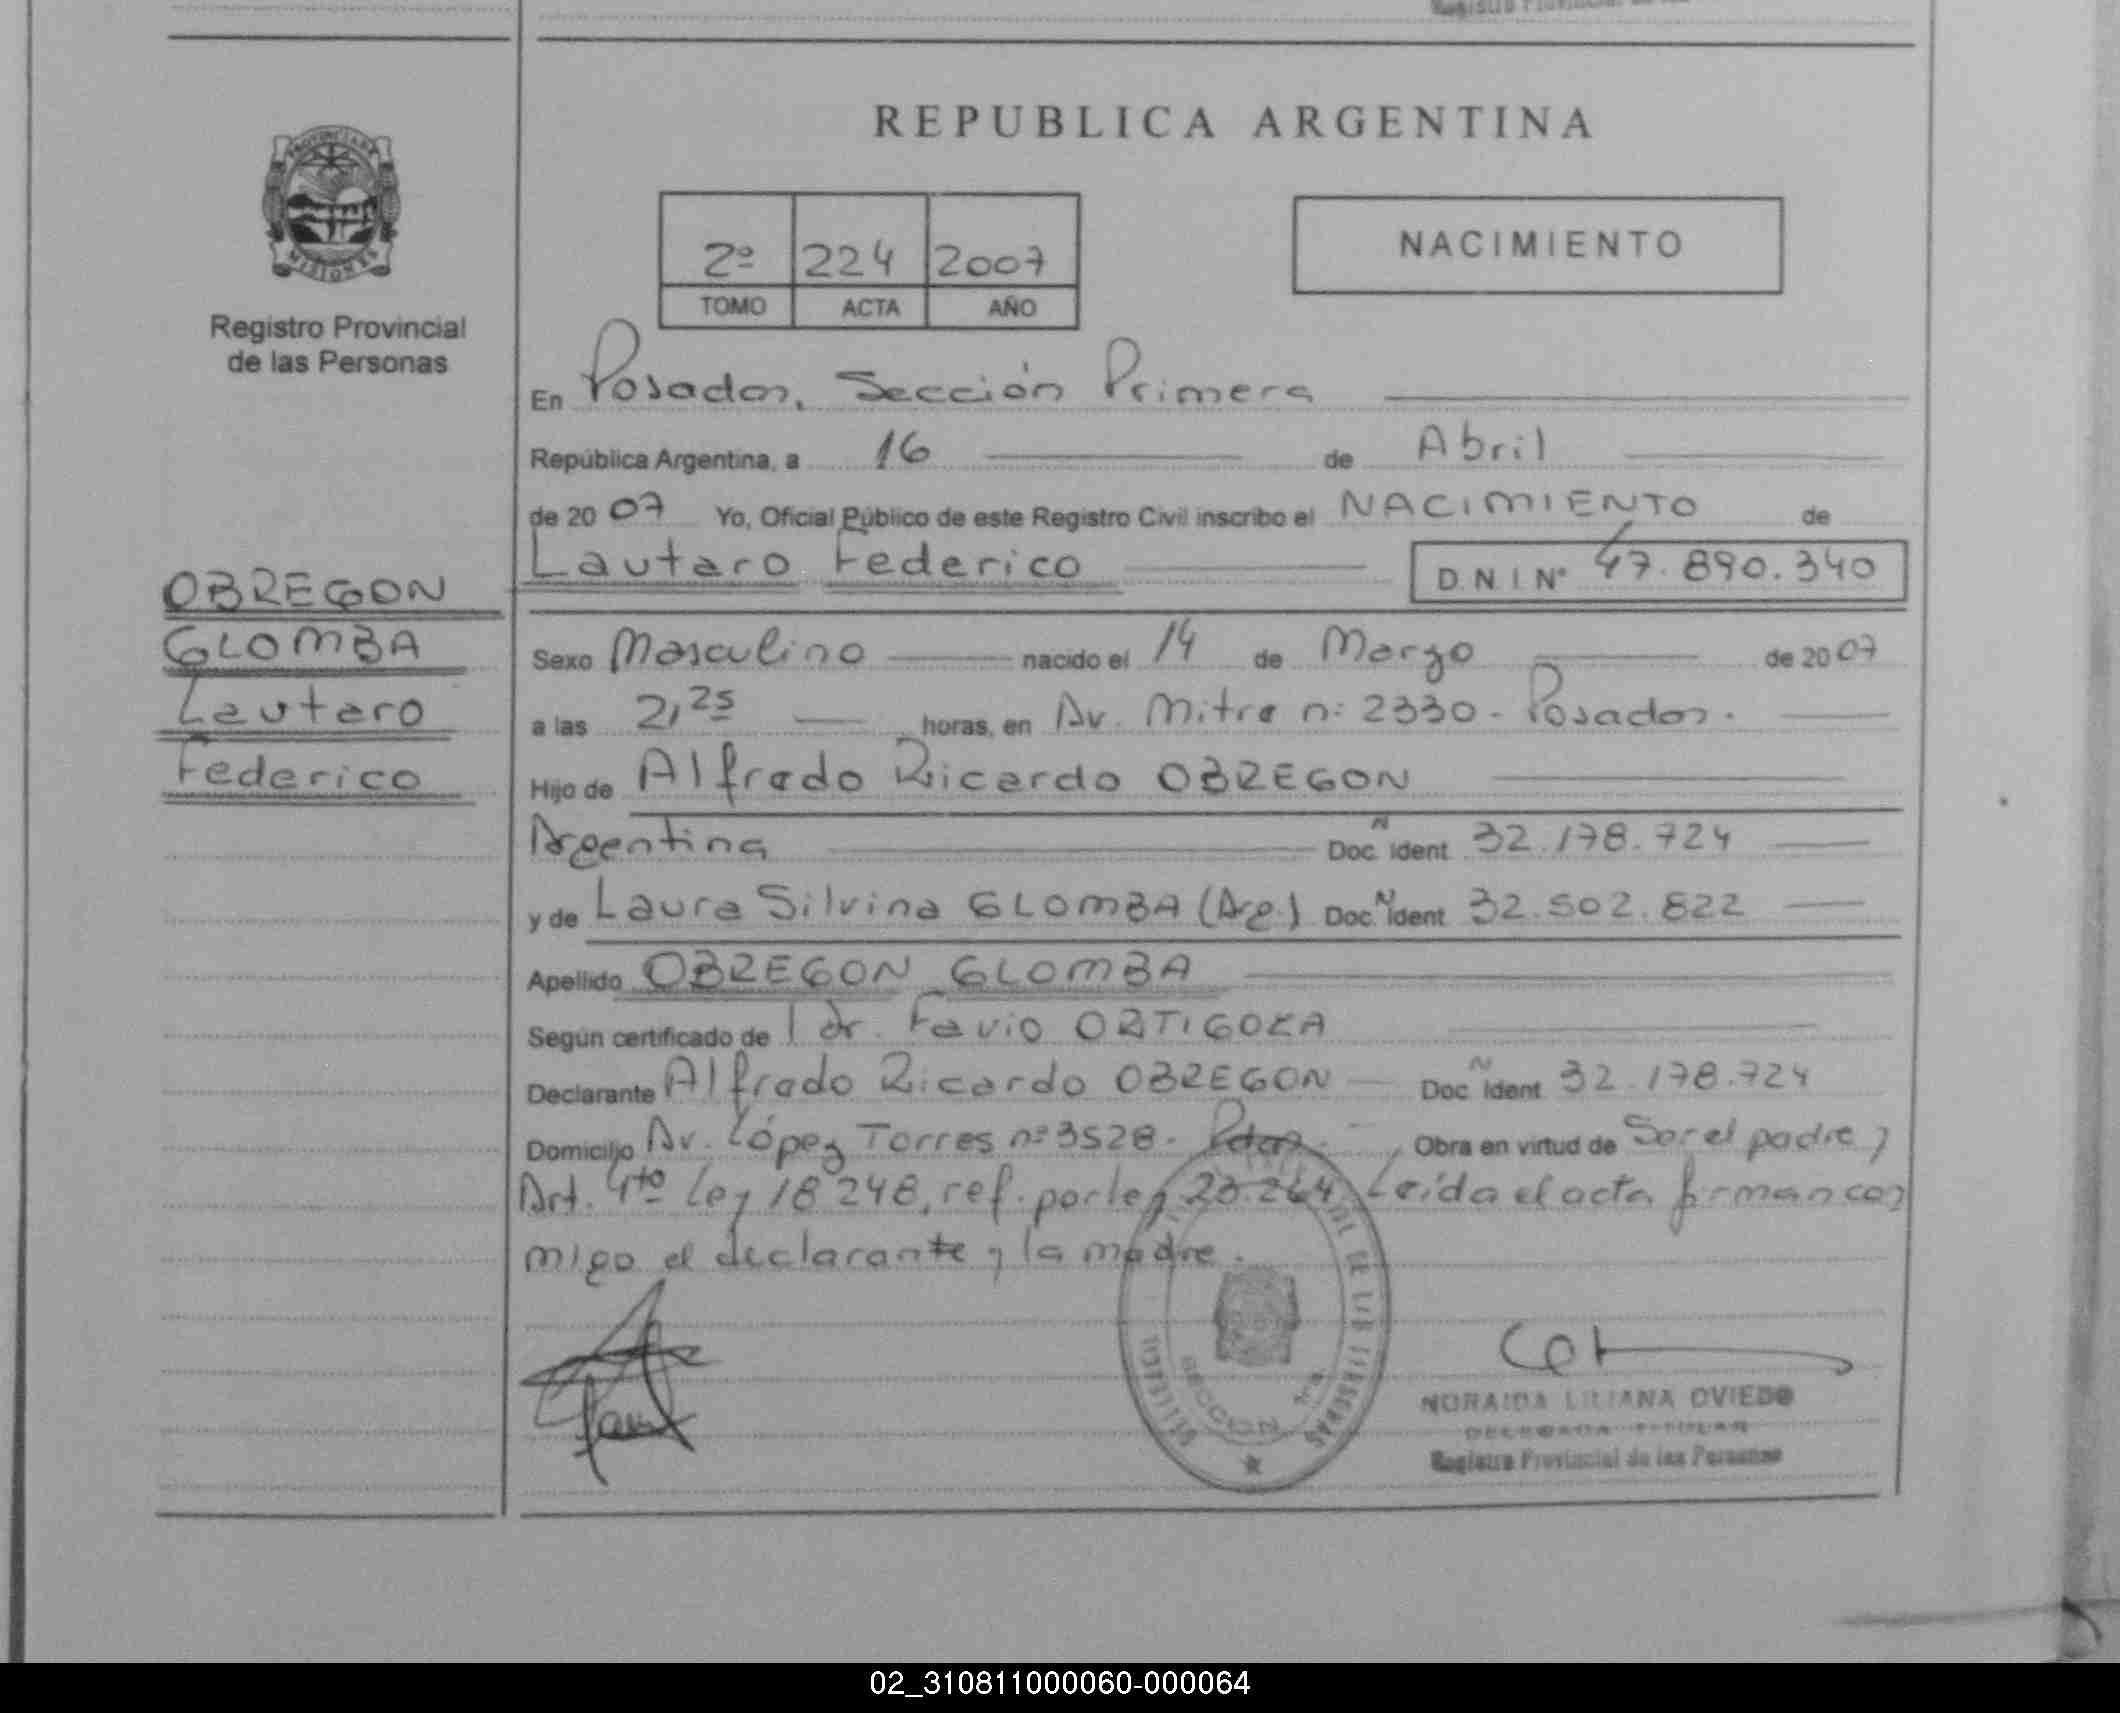 REPUBLICA ARGENTINA
PROVINCIA DE
MISIONES
Registro Provincial
de las Personas
2º 224 2007
TOMO ACTA AÑO
NACIMIENTO
En Posadas, Sección Primera
República Argentina, a 16 de Abril
de 2007 Yo, Oficial Público de este Registro Civil inscribo el NACIMIENTO de
Lautaro Federico D.N.I Nº 47.890.340
OBREGON
GLOMBA
Lautaro
Federico
Sexo Masculino nacido el 14 de Marzo de 2007
a las 2,25 horas, en Av. Mitre nº 2330 - Posadas.
Hijo de Alfredo Ricardo OBREGON
Argentina Doc. Ident. 32.178.724
y de Laura Silvina GLOMBA (Arg.) Doc. Ident. 32.502.822
Apellido OBREGON GLOMBA
Según certificado de l dr. Favio
Declarante Alfredo Ricardo OBREGON Doc. Ident. 32.178.724
Domicilio Av. López Torres nº 3528. Pdas. Obra en virtud de Ser el padre y
Art. 4to Ley 18248, ref. por ley 23.264. Leída el acta firman con
migo el declarante y la madre.
SECCION 1ra.
DE LAS PERSONAS
NORAIDA LILIANA OVIEDO
DELEGADA TITULAR
Registro Provincial de las Personas
02_310811000060-000064